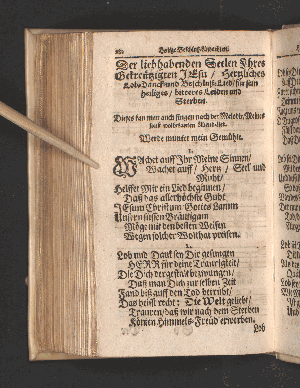 Der liebhabenden Seelen Ihres
Gekreutzigten JEsu / Hertzliches
Lob-Danck-und Beschluß-Lied / für sein
heiliges / bitteres Leiden und
Sterben.
Dieses kan man auch singen nach der Melodie
Werde munter mein Gemühte.
1.
WAchet auff Ihr Meine Sinnen /
Wachet auff / Hertz / Seel und
Muht /
Helffet Mir ein Lied beginnen /
Daß das allerhöchste Guht
JEsum Christum Gottes Lamm
Unsern süssen Bräutigam
Möge mit den besten Weisen
Wegen solcher Wolthat preisen.
2.
Lob und Danck sey Dir gesungen
HERR für deine Traurigkeit /
Die Dich der gestalt bezwungen /
Daß man Dich zur selben Zeit
Fand biß auff den Tod betrübt /
Das heisst recht: Die Welt geliebt /
Trauren / daß wir nach dem Sterben
Können Himmels-Freud erwerben.
Lob